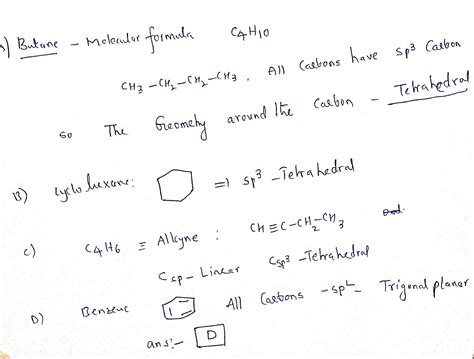 A) Butane - Molecular formula C4H10
CH3-CH2-CH2-CH3. All Carbons have sp3 Carbon
so The Geomehy around the Carbon - Tetrahedral
B) cyclo hexane: => sp3 - Tetrahedral
c) C4H6 ≡ Alkyne : CH≡C-CH2-CH3
Csp - Linear Csp3 - Tetrahedral
D) Benzene All Carbons - sp2 - Trigonal planar
ans:- D